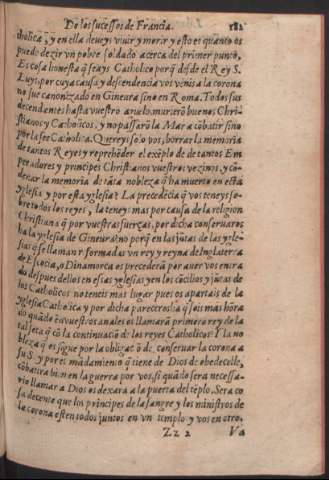 De los sucessos de Francia. 182
tholica, y en ella deueys viuir y morir y esto es quanto os
puedo dezir vn pobre soldado acerca del primer punto,
Es cosa honesta q̃ seays Catholico porq̃ dẽsde el Rey S.
Luys por cuya causa y descendencia vos venis a la corona
no sue canonizado en Gineura sino en Roma. Todos sus
decendientes hasta vuestro aguelo, murierõ buenos Chri-
stianos y Catholicos, y no passarõ la Mar a cõbatir sino
por la fee Catholica. Quereys solo vos, borrar la memoria
de tantos Reyes y reprehẽder el exẽplo de de tantos Em
peradores y principes Christianos vuestros vezinos, y cõ-
denar la memoria de tãta nobleza q̃ ha muerto en esta
Yglesia y por esta yglesia? La precedẽcia q̃ vos teneys so-
bre todos los reyes, la teneys mas por causa de la religion
Christiana q̃ por vuestras fuerças, por dicha conseruaros
ha la yglesia de Gineura? no porq̃ en las jũtas de las ygle-
sias q̃ se llaman reformadas vn rey y reyna de Inglaterra
de Escocia, o Dinamorca os precederã por auer vos entra
do despues dellos en essas yglesias y en los cõcilios y jũtas de
los Catholicos no teneis mas lugar pues os apartais de la
Yglesia Catholica y por dicha parecerosha q̃ sois mas hõra
do quãdo en vuestros anales os llamarã primero rey de la
tal seta q̃ cõ la continuaciõ de los reyes Catholicos? Y la no
bleza q̃ os sigue por la obligaciõ de conseruar la corona a
su S. y por el mãdamiento q̃ tiene de Dios de obedecelle,
cõbatira bien en la guerra por vos, si quãdo sera necessa-
rio llamar a Dios os dexara a la puerta del tẽplo. Sera co
sa decente que los principes de la sangre y los ministros de
la corona esten todos juntos en vn templo y vos en otro.
Zz 2 Va